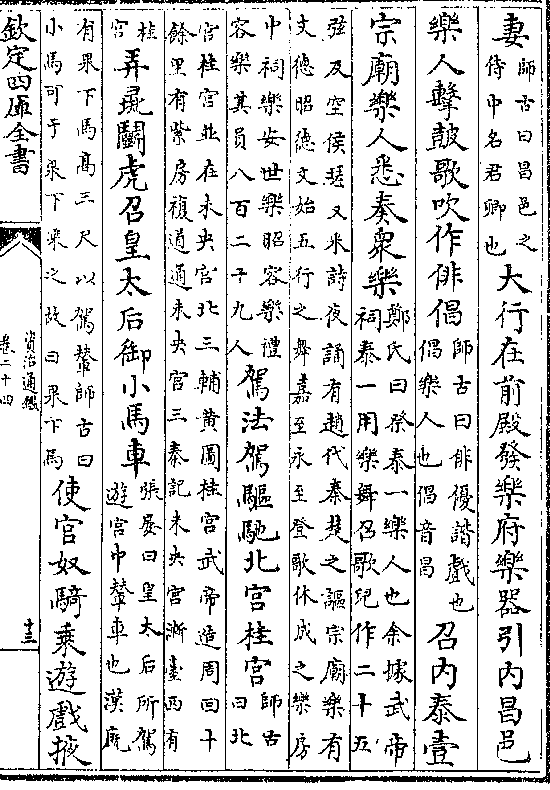 妻師古曰昌邑之侍中名君卿也大行在前殿發樂府樂器引内昌邑
樂人擊鼓歌吹作俳倡師古曰俳優諧戲也倡樂人也倡音昌召内泰壹
宗廟樂人悉奏衆樂鄭氏曰祭泰一樂人也余據武帝祠泰一用樂舞召歌兒作二十五
弦及空侯瑟又采詩夜誦有趙代秦楚之謳宗廟樂有文德昭德文始五行之舞嘉至永至登歌休成之樂房
中祠樂安世樂昭容樂禮容樂其員八百二十九人駕法駕驅馳北宫桂宫師古曰北
宫桂宫並在未央宫北三輔黄圖桂宫武帝造周回十餘里有紫房複道通未央宫三秦記未央宫漸臺西有
桂宫弄彘鬭虎召皇太后御小馬車張晏曰皇太后所駕遊宫中輦車也漢廐
有果下馬髙三尺以駕輦師古曰小馬可于果下乗之故曰果下馬使官奴騎乗遊戲掖
欽定四庫全書
資治通鑑
卷二十四
十三